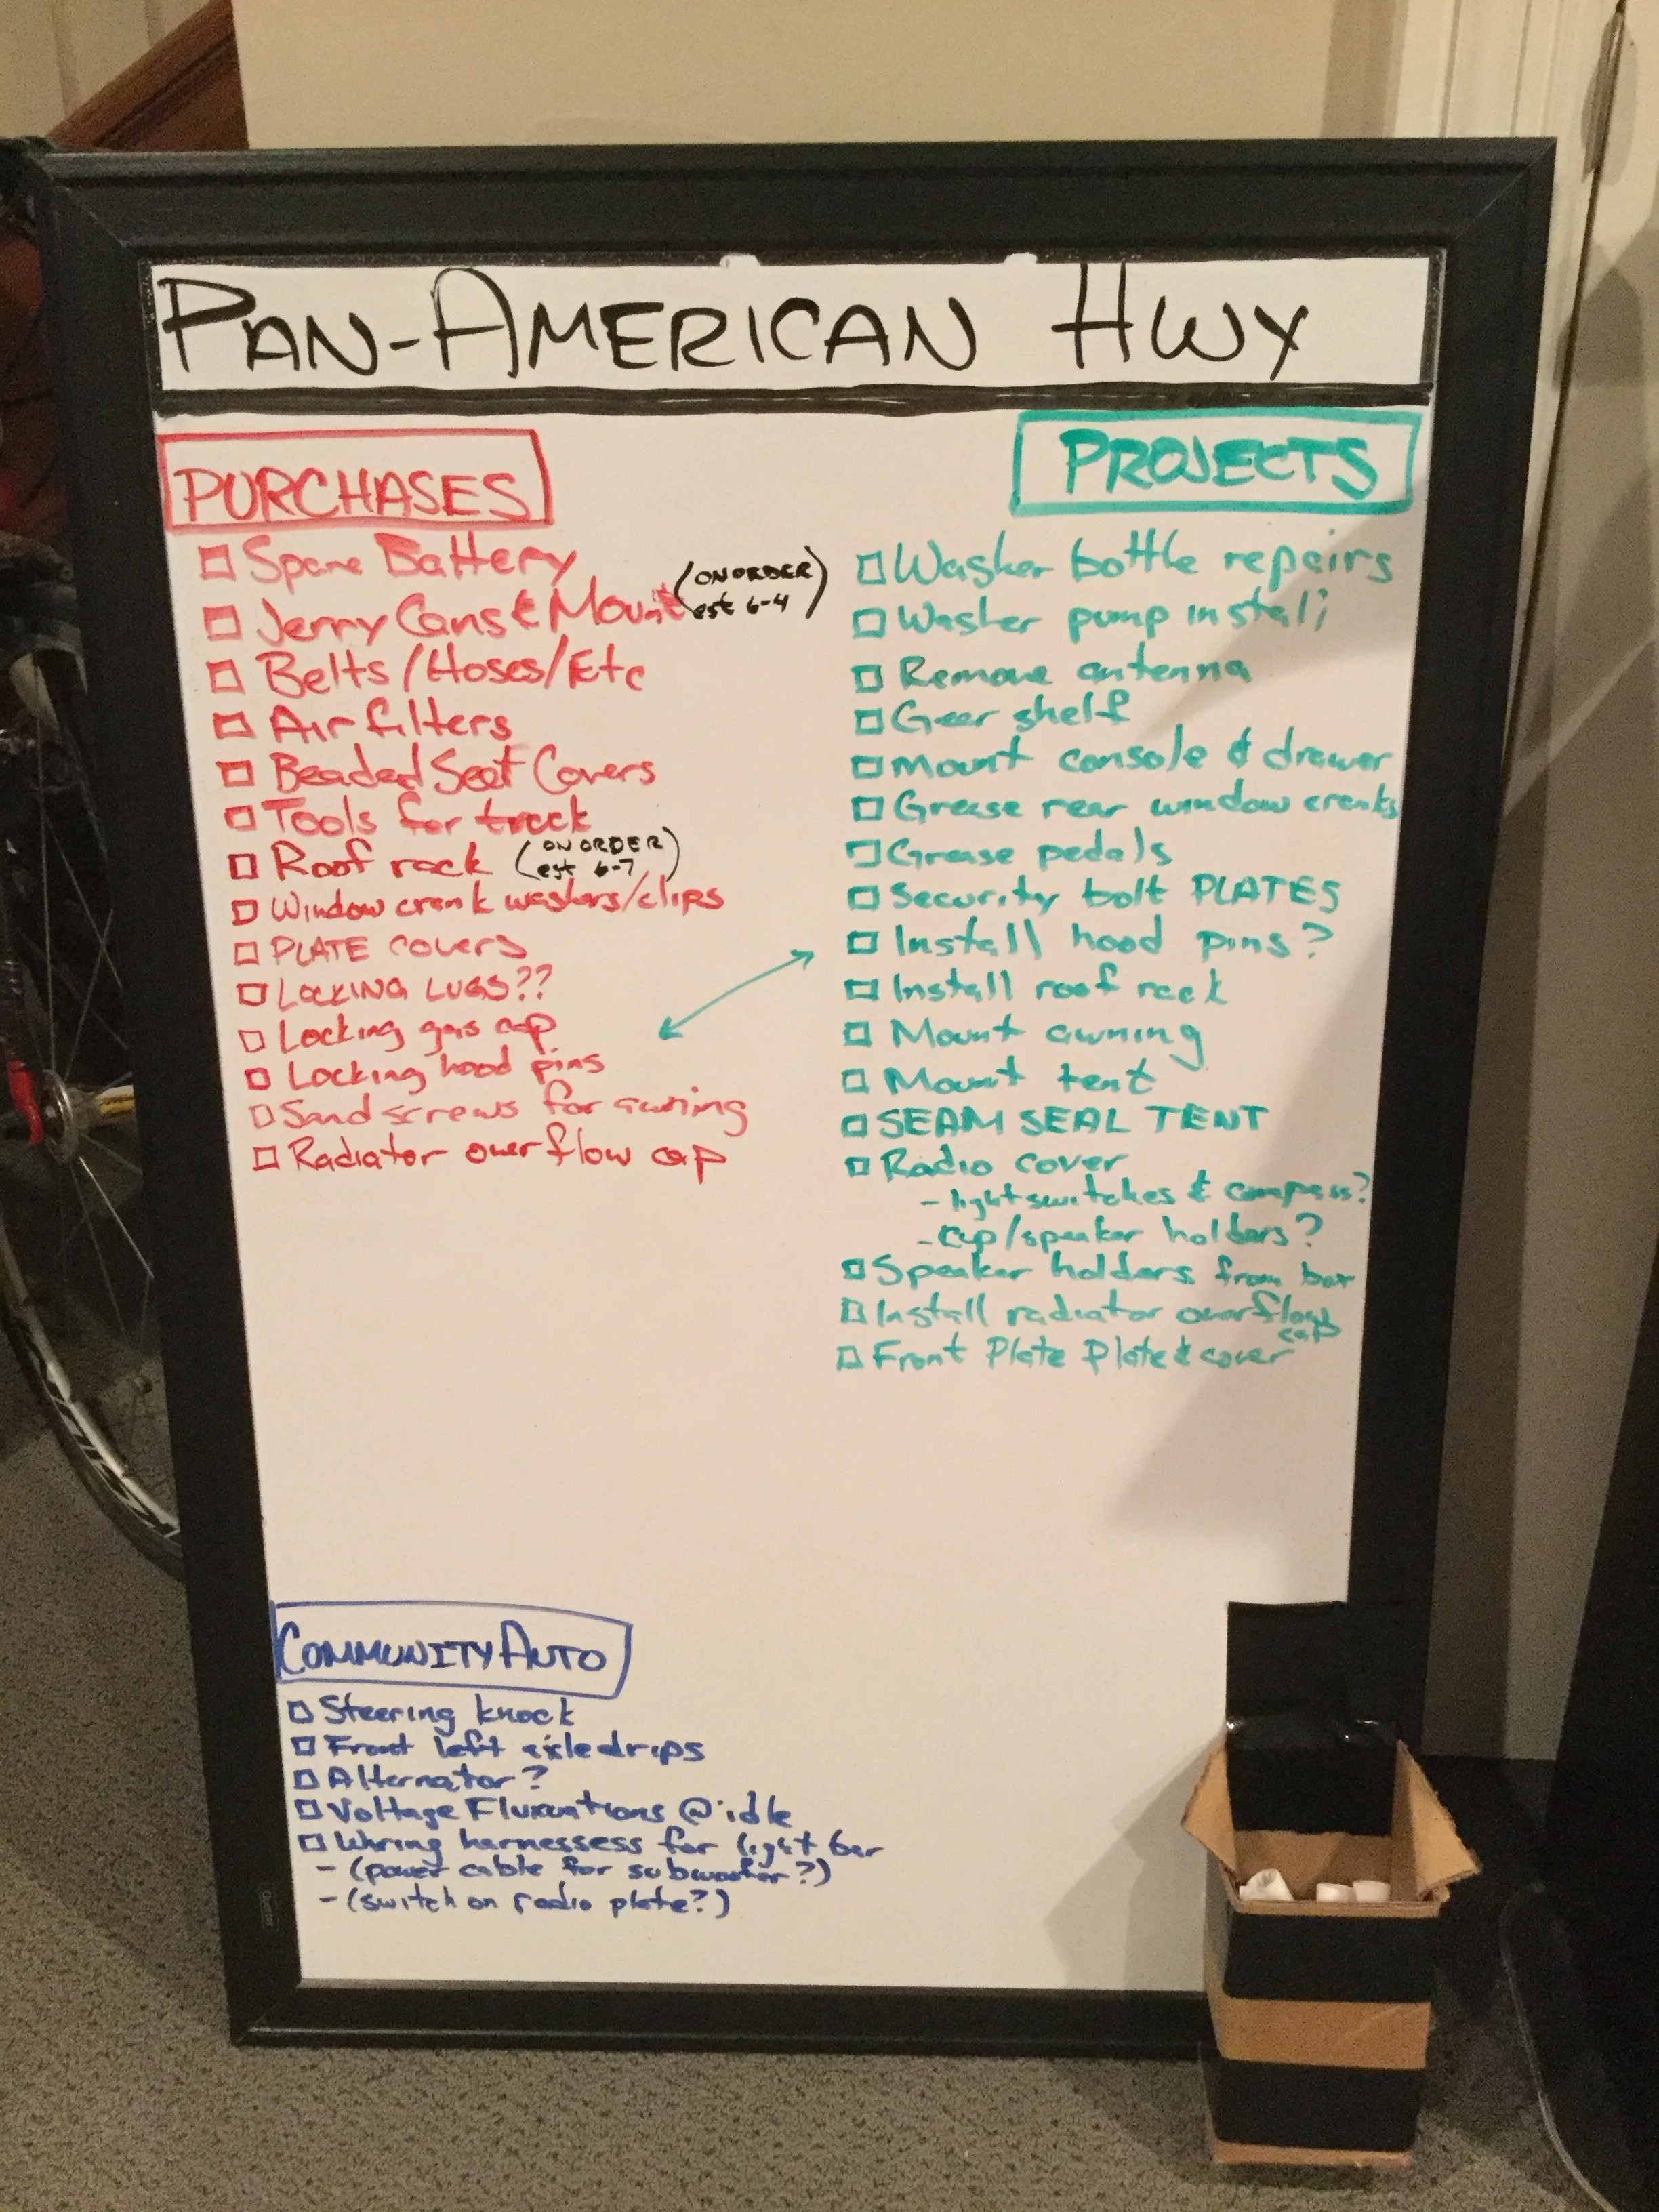 PAN-AMERICAN HWY
PURCHASES
Spare Battery
Jerry Cans & Mount (ON ORDER est 6-4)
Belts/Hoses/Etc
Air filters
Beaded Seat Covers
Tools for truck
Roof rack (ON ORDER est 6-7)
Window crank washers/clips
PLATE covers
LOCKING LUGS??
Locking gas cap
Locking hood pins
Sand screws for awning
Radiator overflow cap
PROJECTS
Washer bottle repairs
Washer pump install
Remove antenna
Gear shelf
Mount console & drawer
Grease rear window cranks
Grease pedals
Security bolt PLATES
Install hood pins?
Install roof rack
Mount awning
Mount tent
SEAM SEAL TENT
Radio cover
- light switches & compass?
- cup/speaker holders?
Speaker holders from box
Install radiator overflow
cap
Front Plate Plate & cover
COMMUNITY AUTO
Steering knock
Front left axle drips
Alternator?
Voltage Fluxuations @ idle
Wiring harnessess for light bar
- (power cable for subwoofer?)
- (switch on radio plate?)